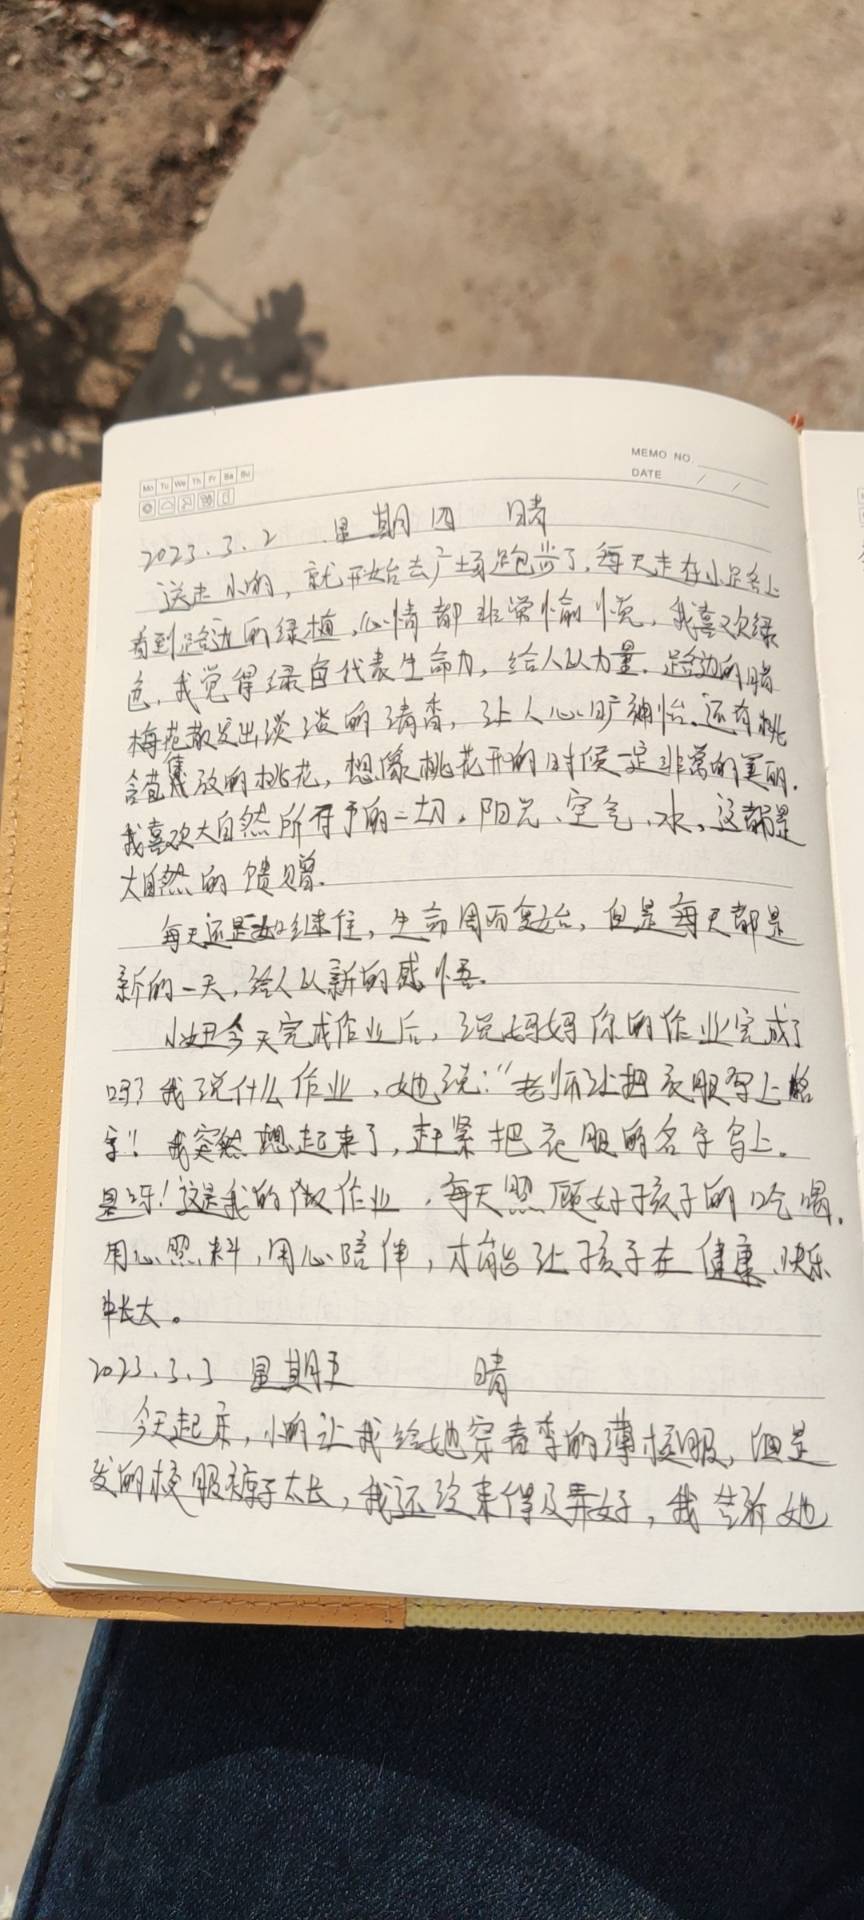 MEMO NO.
DATE / /
Mo Tu We Th Fr Sa Su
2023.3.2 星期四 晴
送走小雨，就开始去广场跑步了，每天走在小路上
看到路边的绿植，心情都非常愉悦，我喜欢绿
色，我觉得绿色代表生命力，给人以力量，路边的腊
梅花散发出淡淡的清香，让人心旷神怡，还有桃
含苞待放的桃花，想像桃花开的时候一定非常的美丽，
我喜欢大自然所给予的一切，阳光、空气、水，这都是
大自然的馈赠．
每天还是继续，生命周而复始，但是每天都是
新的一天，给人以新的感悟．
小妞今天完成作业后，说妈妈你的作业完成了
吗？我说什么作业，她说：“老师让把衣服写上名
字！我突然想起来了，赶紧把衣服的名字写上。
是呀！这是我的作业，每天照顾好孩子的吃喝，
用心照料，用心陪伴，才能让孩子在健康、快乐
中长大。
2023.3.3 星期五 晴
今天起床，小雨让我给她穿春季的薄校服，但是
发的校服裤子太长，我还没来得及弄好，我告诉她